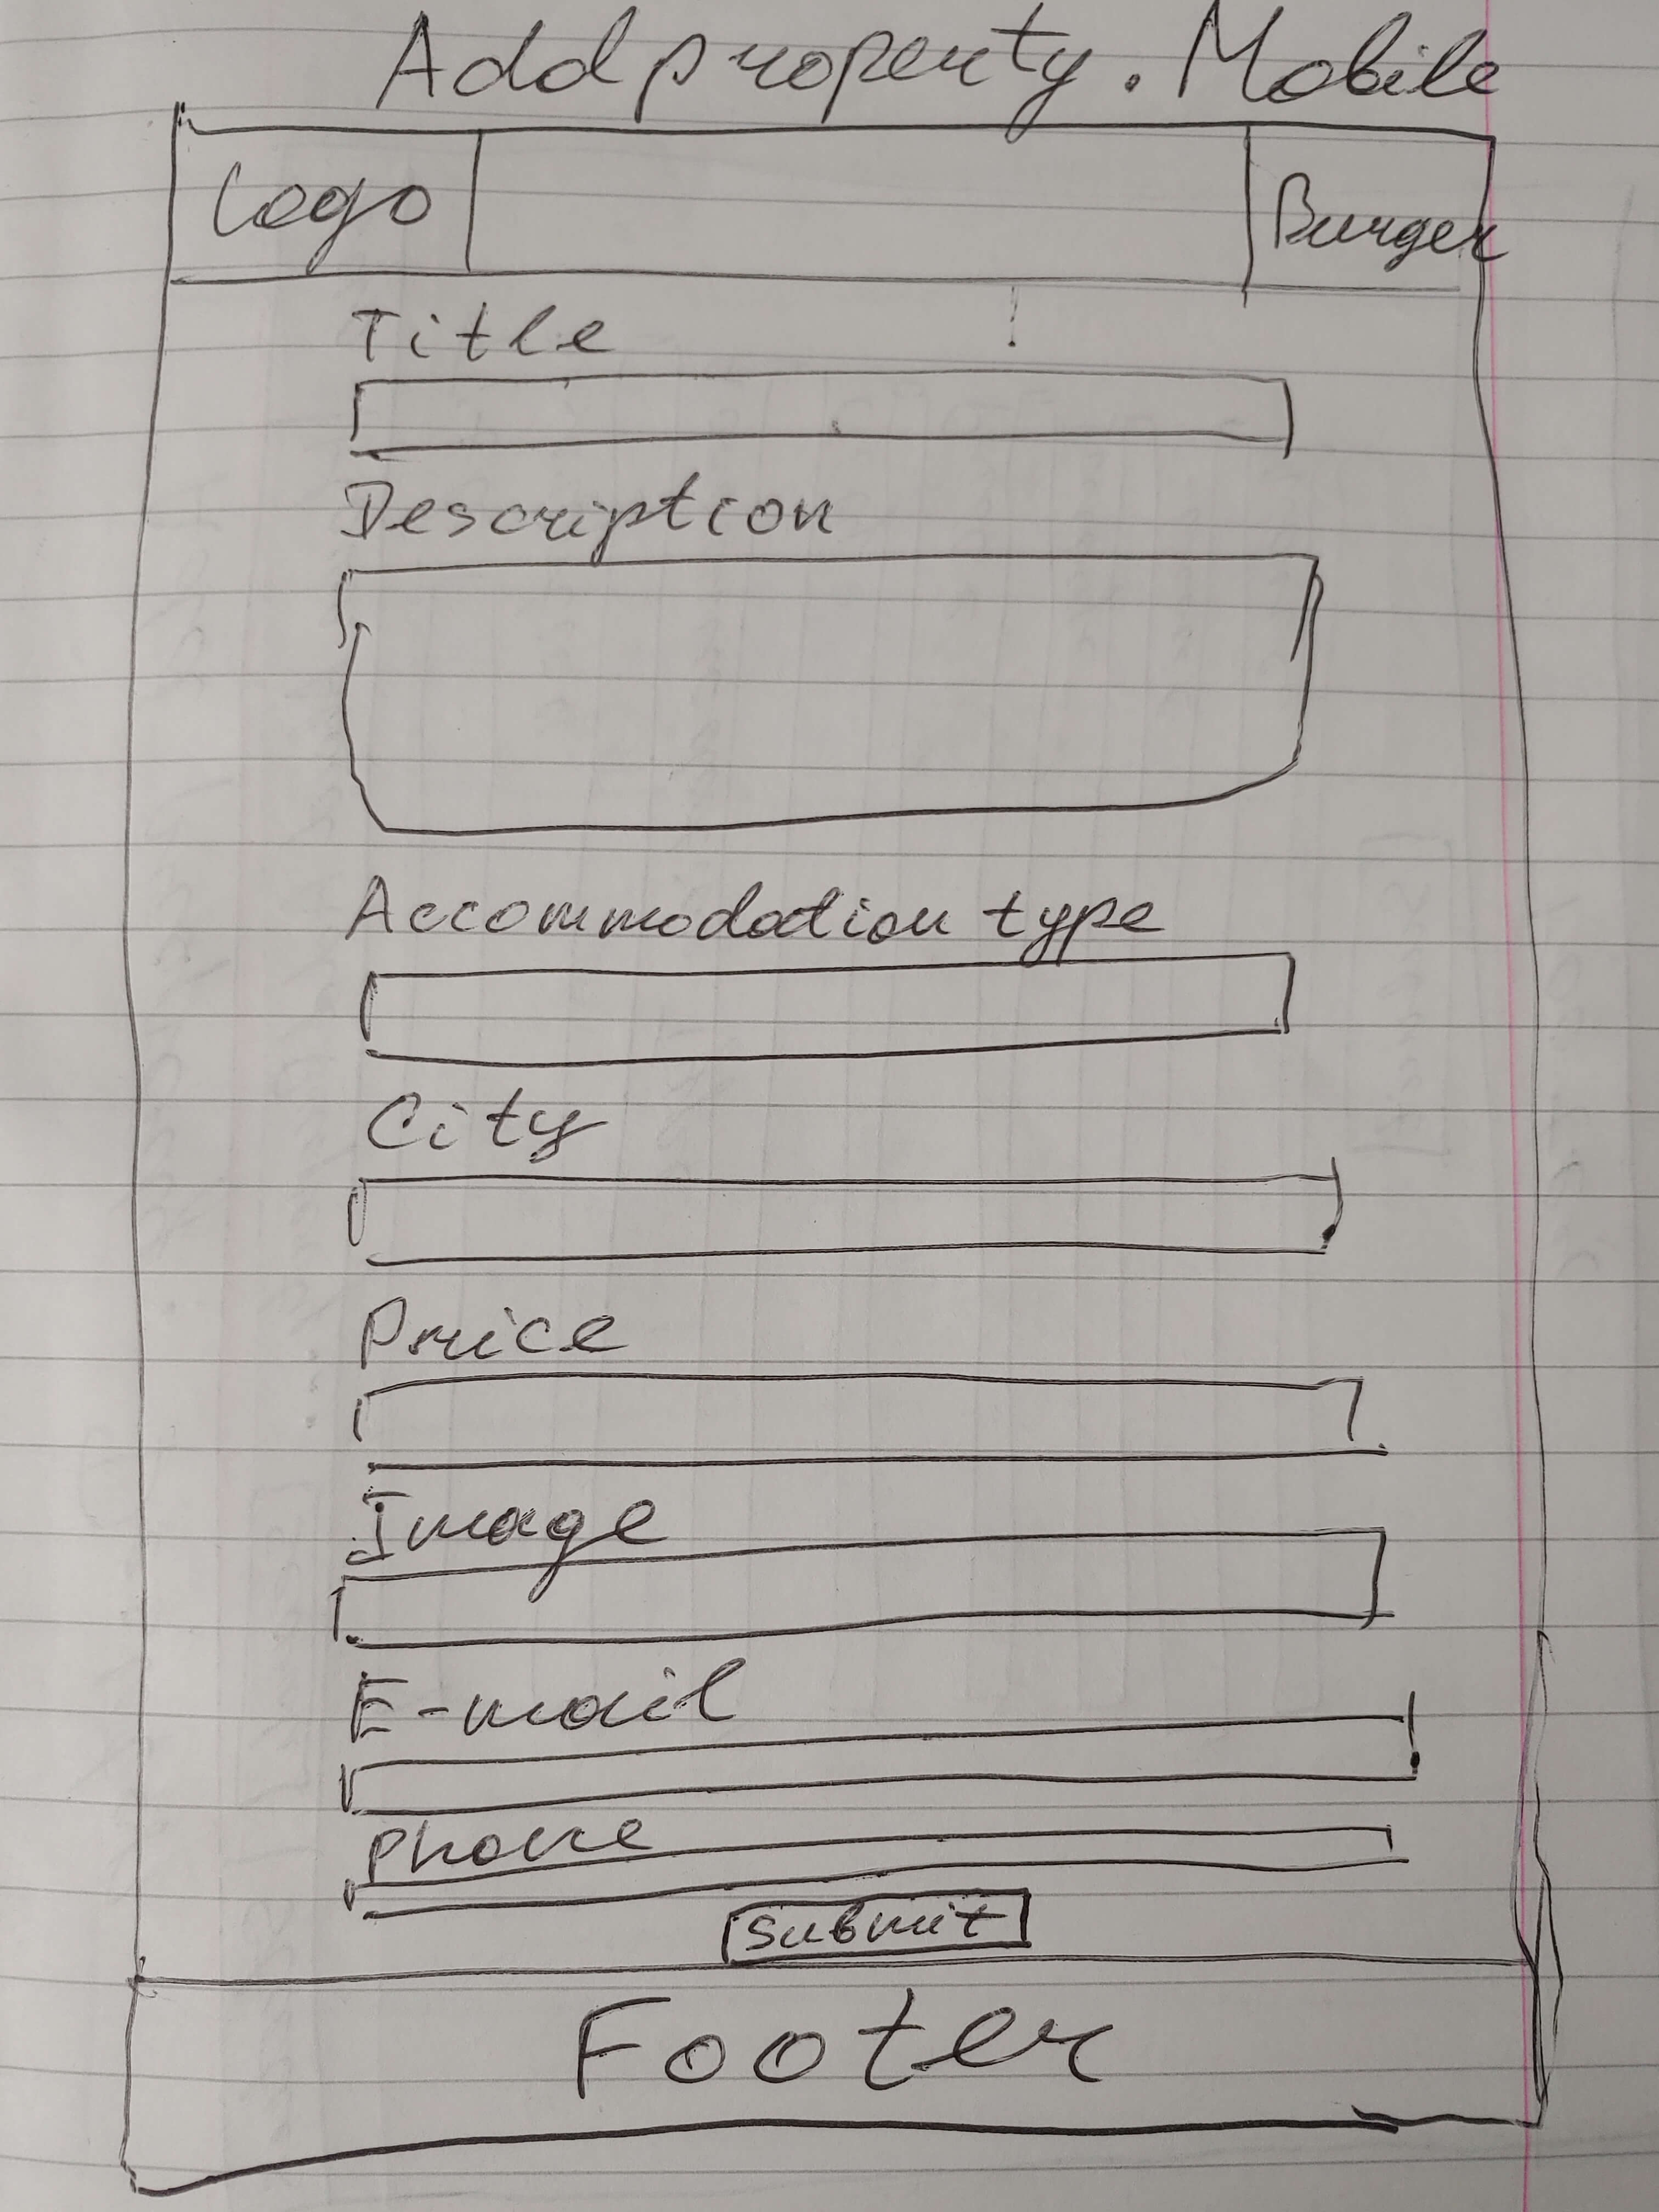 Add property. Mobile
Logo
Burger
Title
Description
Accommodation type
City
Price
Image
E-mail
Phone
Submit
Footer